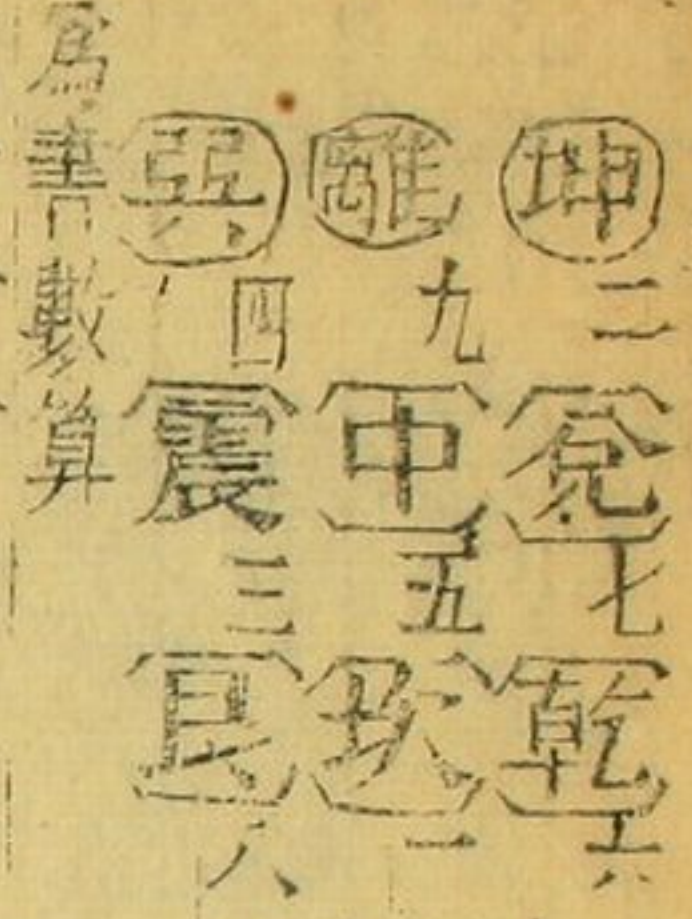 坤二兌七乾六
離九中五坎一
巽四震三艮八
爲數算